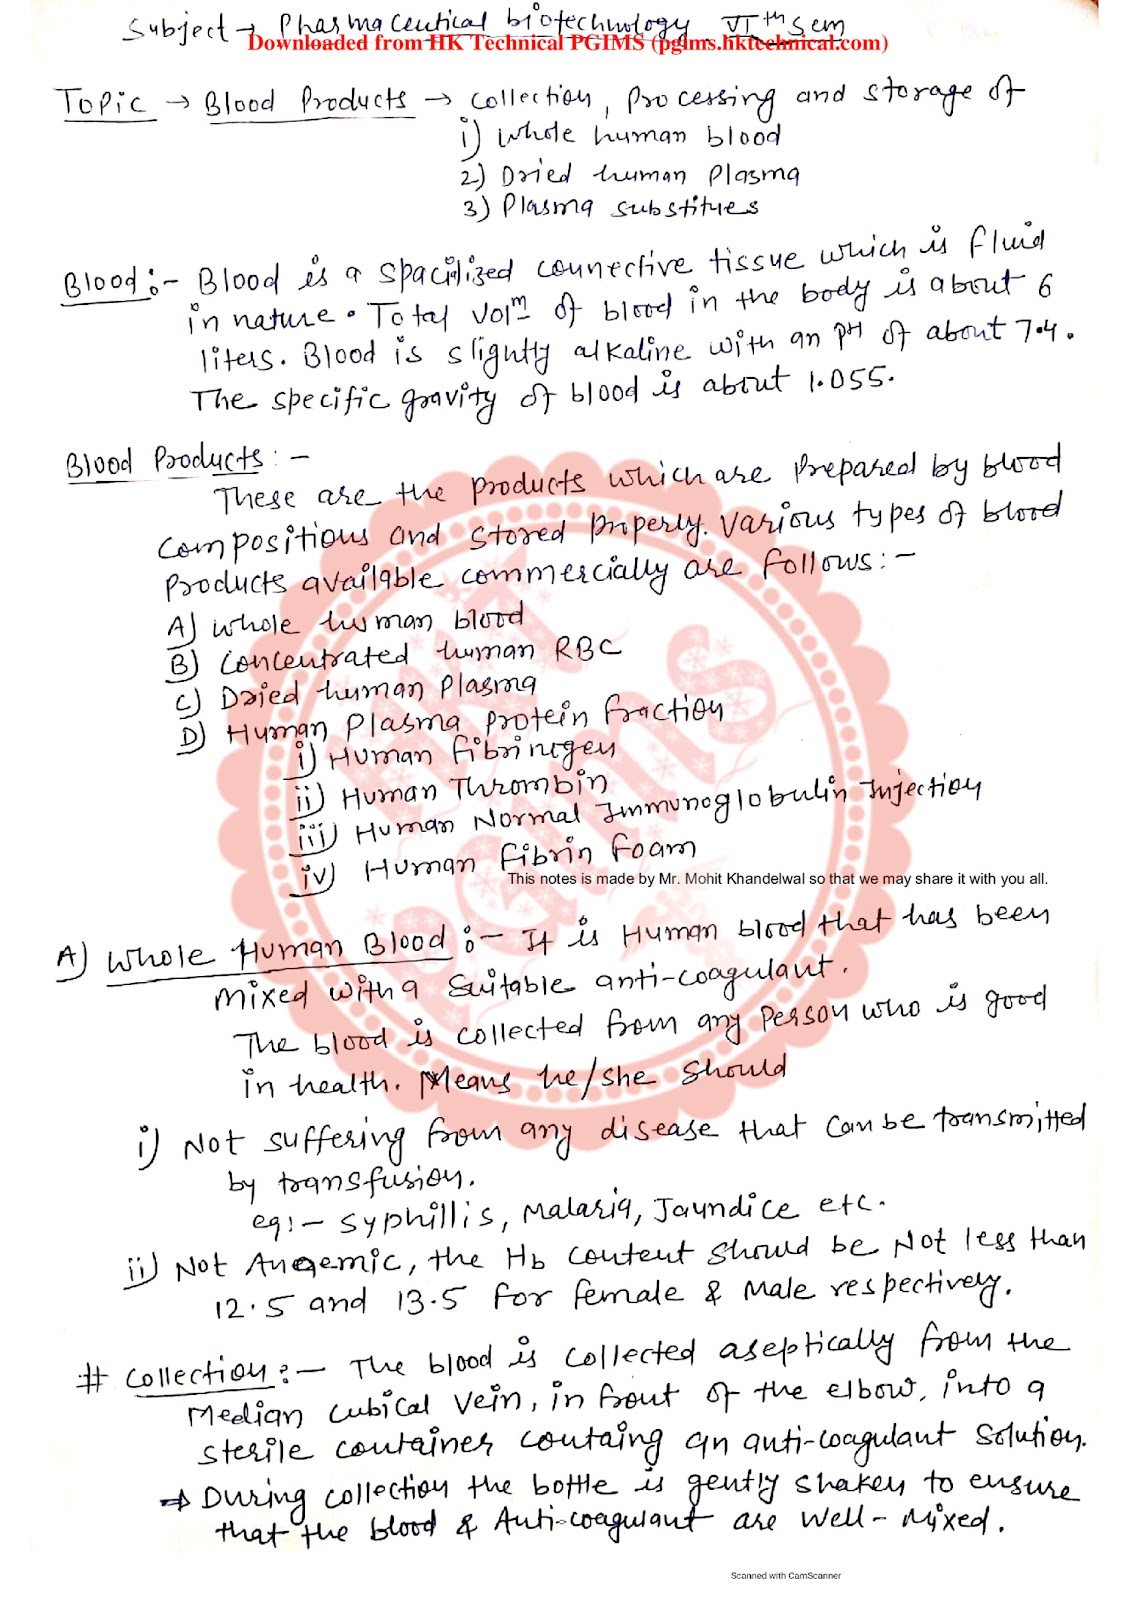 Subject → Pharmaceutical biotechnology VIth Sem
Downloaded from HK Technical PGIMS (pgims.hktechnical.com)
Topic → Blood Products → Collection, Processing and storage of
i) Whole human blood
2) Dried human Plasma
3) Plasma substitues
Blood:- Blood is a spacialized connective tissue which is fluid
in nature. Total volm of blood in the body is about 6
liters. Blood is slightly alkaline with an pH of about 7.4.
The specific gravity of blood is about 1.055.
Blood Products:-
These are the products which are prepared by blood
compositions and stored properly. Various types of blood
products available commercially are follows:-
A) Whole human blood
B) Concentrated human RBC
C) Dried human Plasma
D) Human Plasma protein fraction
i) Human fibrinogen
ii) Human Thrombin
iii) Human Normal Immunoglobulin Injection
iv) Human fibrin foam
This notes is made by Mr. Mohit Khandelwal so that we may share it with you all.
A) Whole Human Blood:- It is Human blood that has been
mixed with a suitable anti-coagulant.
The blood is collected from any person who is good
in health. Means he/she should
i) Not suffering from any disease that can be transmitted
by transfusion.
eg:- Syphillis, Malaria, Jaundice etc.
ii) Not Anaemic, the Hb content should be Not less than
12.5 and 13.5 for female & Male respectively.
# Collection:- The blood is collected aseptically from the
Median cubical vein, in front of the elbow, into a
sterile container containg an anti-coagulant solution.
→ During collection the bottle is gently shaken to ensure
that the blood & Anti-coagulant are well-mixed.
HKT
PGIMS
Scanned with CamScanner